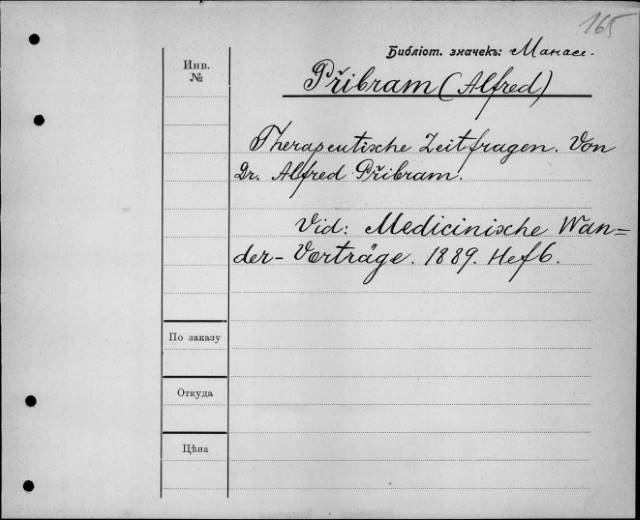 165
Библіот. значекъ: Манас.
Инв.
№
Přibram (Alfred)
Therapeutische Zeitfragen. Von
Dr. Alfred Přibram.
Vid: Medicinische Wan=
der-Vorträge. 1889. Hef 6.
По заказу
Откуда
Цѣна